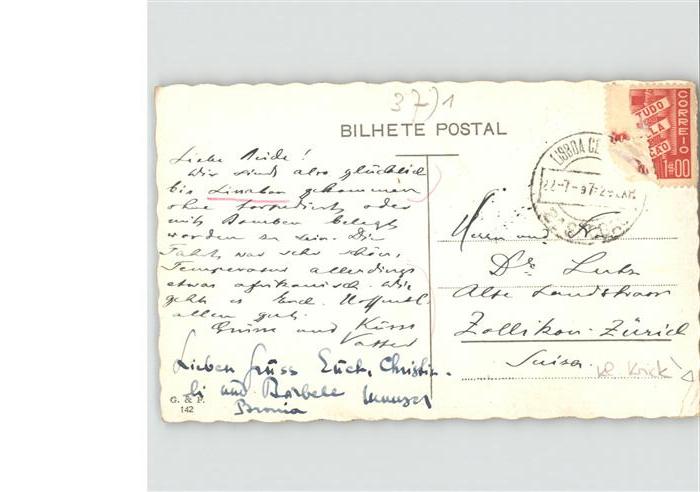 37)1
BILHETE POSTAL
CORREIO
TUDO
1$00
LISBOA CE
Liebe Beide!
Wir sind also glücklich
bis Lissabon gekommen
ohne torpediert oder
mit Bomben belegt
worden zu sein. Die
Fahrt war sehr schön,
Temperatur allerdings
etwas afrikanisch. Wie
geht es Euch. Hoffentl.
allen gut.
Grüsse und Küsse
Vatter
Lieben Gruss Euch, Christin-
li und Bärbele
Bronia
Herrn und Frau
Dr Lutz
Alte Landstrasse
Zollikon-Zürich
Suisse
G. & F.
142